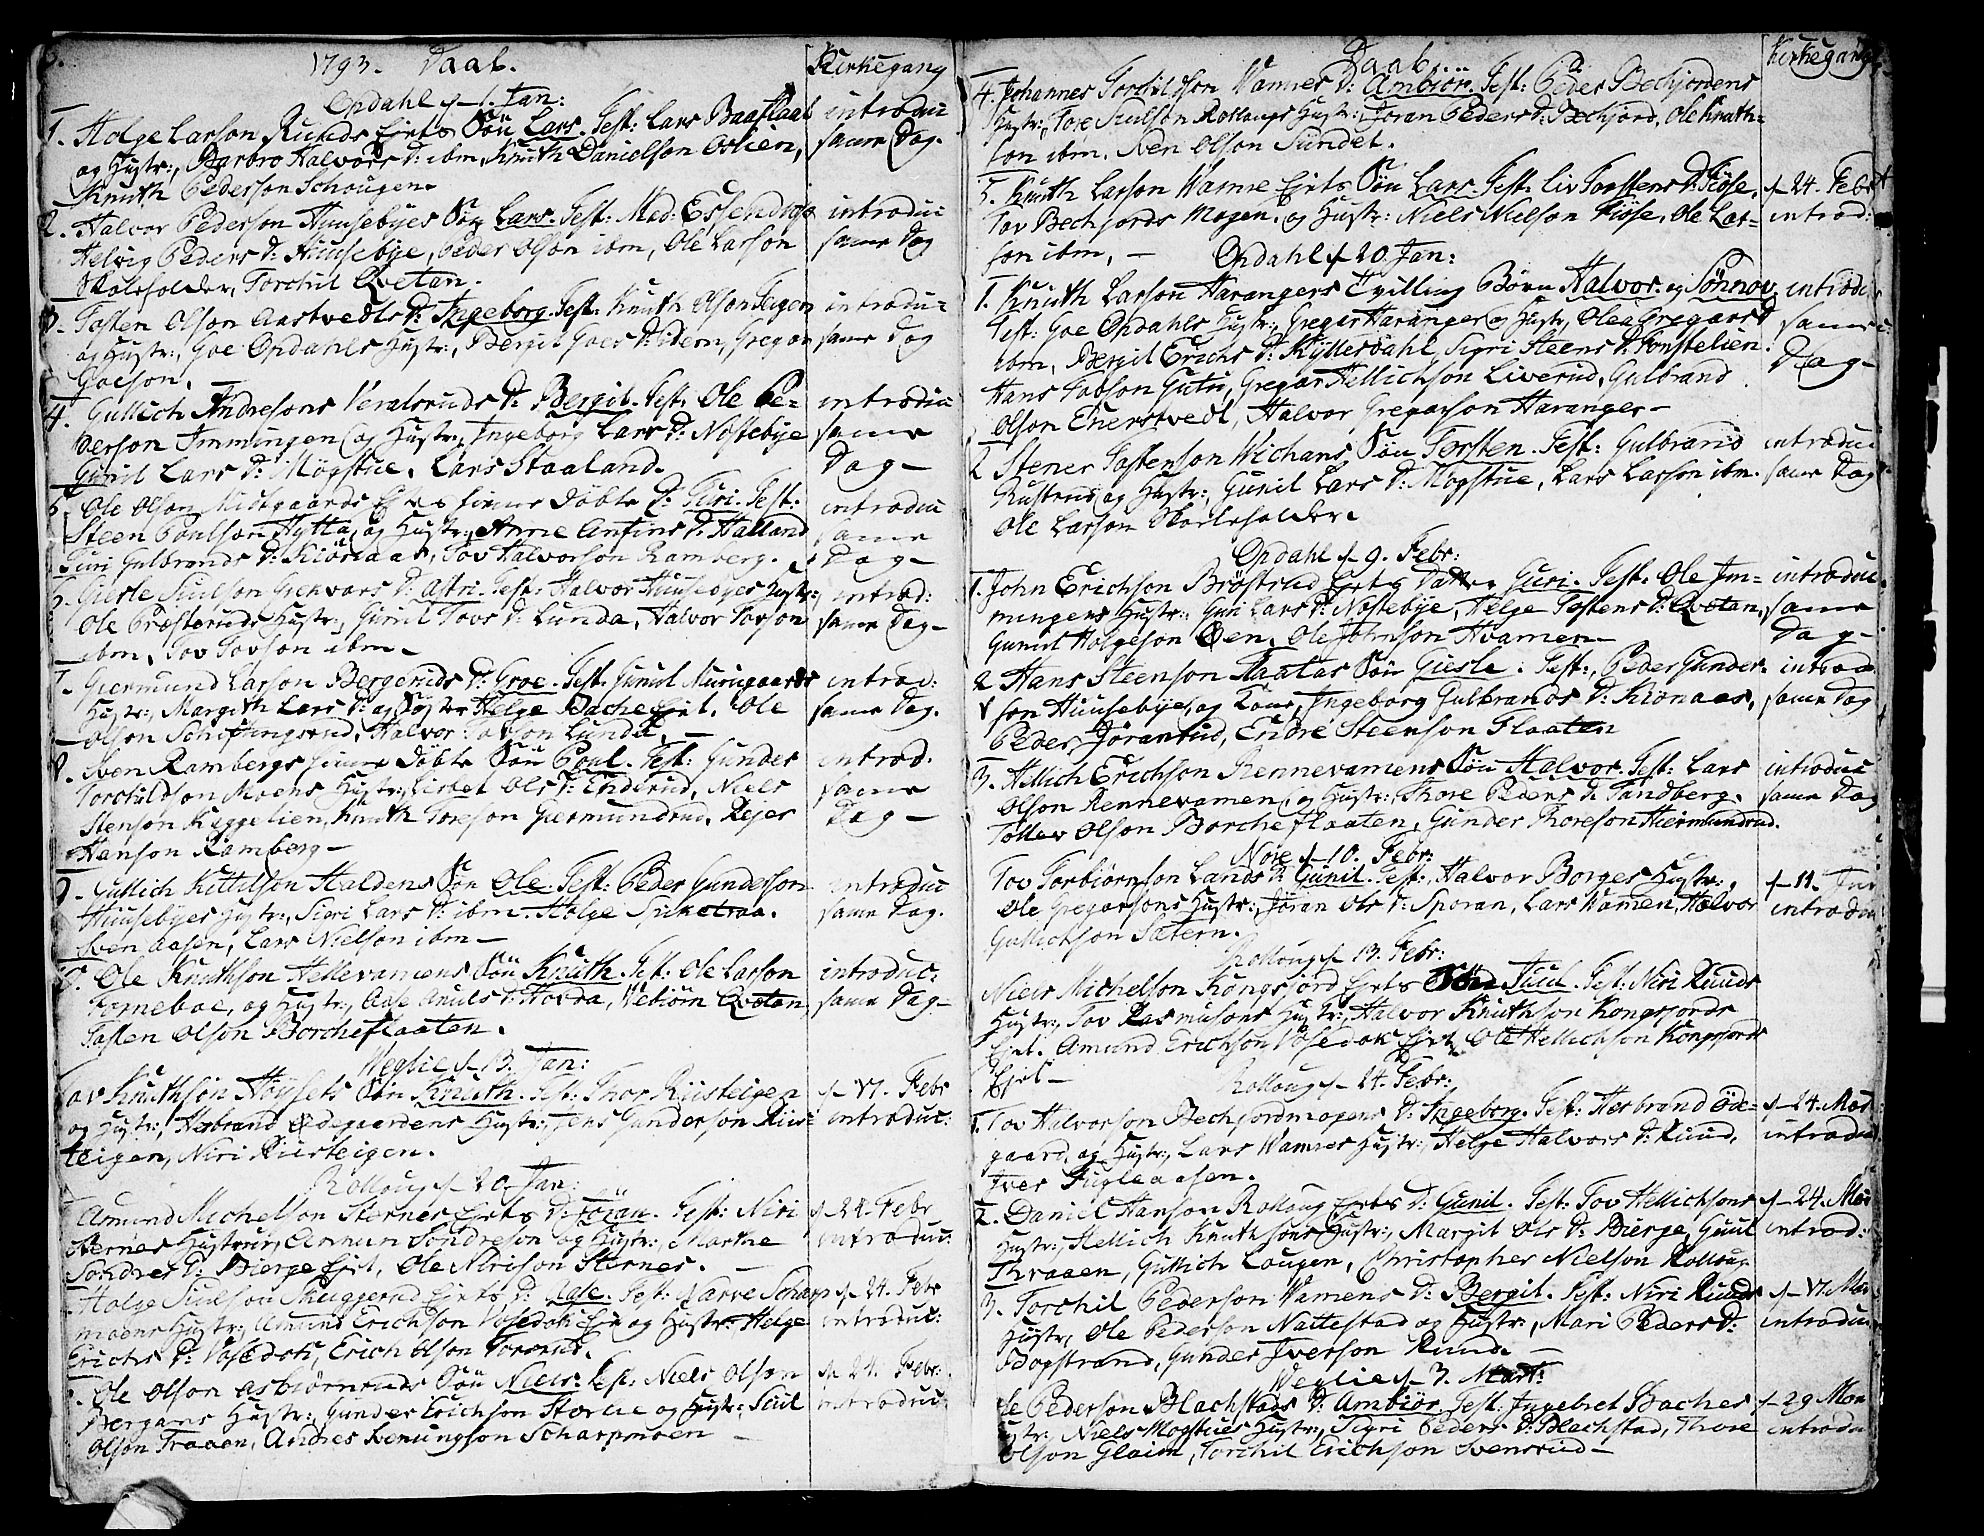 1793. Daab.
Kirkegang
Opdahl d. 1. Jan:
1. Holge Larson Ruuds Ejets Søn Lars. Test: Lars Baaflaat
og Hustr:, Barbro Halvors D: ibm, Knuth Danielson Oslien,
Knuth Pederson Schougen.
introduc
samme Dag.
2. Halvor Pederson Huusebyes Søn Lars. Test: Mad. Essendrop
Helvig Peders D: Huusebye, Peder Olson ibm, Ole Larson
Skoleholder, Torchil Qvetan.
introduc
samme Dag
3. Tosten Olson Aastvedts D: Ingeborg. Test: Knuth Olson Teigen
og Hustr:, Goe Opdahls Hustr:, Bergit Goes D: idem, Gregar
Goeson.
introduc
samme Dag
4. Gullich Andresons Veralsruds D: Bergit. Test: Ole Pe=
derson Immingen og Hustr:, Ingeborg Lars D: Nøstebye
Gunil Lars D: Mogstue, Lars Staaland.
introduc
samme
Dag
5. Ole Olson Midtgaards Ejets hiemme døbte D: Turi. Test:
Steen Poulson Hytta, og Hustr:, Anne Anfins D: Halland
Turi Gulbrands D: Kiønaas, Tov Halvorson Ramberg.
introduc
samme
Dag
6. Gisle Siulson Grervars D: Astri. Test: Halvor Huusebyes Hustr:,
Ole Præsteruds Hustr:, Gunil Tovs D: Lunda, Halvor Tovson
ibm, Tov Tovson ibm
introd:
samme Dag
7. Giermund Larson Bergeruds D: Groe. Test: Gunil Nurugaards
Hustr:, Margith Lars D: og Søster Helge Bache Ejet. Ole
Olson Schiftingsrud, Halvor Tovson Lunda.
introd:
samme Dag.
8. Sven Rambergs hiemme døbte Søn Poul. Test: Gunder
Torchildson Moens Hustr:, Lisbet Ols D: Enderud, Niels
Stenson Kuggelien, Knuth Toreson Giermundrud, Rejer
Hanson Ramberg
introd.
samme
Dag
9. Gullich Kittilson Haldens Søn Ole. Test: Peder Gunderson
Huusebyes Hustr:, Sieri Lars D: ibm. Holge Spiketraa.
Sven Aasen, Lars Nielson ibm
introduc
samme Dag.
10. Ole Knuthson Hellevamens Søn Knuth. Test: Ole Larson
Fornebøe, og Hustr:, Aase Anuls D: Hovda, Vebiørn Qvetan,
Tosten Olson Borcheflaaten.
introduc:
samme Dag
Weglie d. 13. Jan:
Tov Knuthson Høysets Søn Knuth. Test: Thor Riisteigen
og Hustr:, Herbrand Ødegaardens Hustr:, Jens Gunderson Riis=
teigen, Niri Riisteigen.
d. 17. Febr
introduc:
Rolloug d. 20. Jan:
Amund Michelson Sternes Ejets D: Jøran. Test: Niri
Sternes Hustrue, Amun Sondreson og Hustr:, Marthe
Sondres D: Bierge Ejet, Ole Nirison Sternes.
d. 24. Febr
introduc:
Holge Siulson Skuggerud Ejets D: Aase. Test: Narve Scharp
moens Hustr:, Amund Erichson Vosedok Eje og Hustr: Helge
Erichs D: Vosedok, Erich Olson Tororud.
d. 24. Febr
introduc:
Ole Olson Asbiørnruds Søn Niels. Test: Niels Olson
Bergans Hustr:, Gunder Erichson Størlie og Hustr: Siul
Olson Traaen, Andres Kenungson Scharpmoen
d. 24. Febr.
introduc
Daab.
Kirkegang
4. Johannes Torchildson Wamnes D: Ambiør. Test: Peder Bechjordens
Hustr:, Tore Siulson Rollougs Hustr:, Joran Peders D: Bechjord, Ole Knuth=
son ibm, Sven Olson Sundet.
5. Knuth Larson Wamne Ejets Søn Lars. Test: Liv Torstens D: Fiøse,
Tov Bechjords Mogen, og Hustr: Niels Nielson Fiøse, Ole Lar=
son ibm,
d. 24. Febr
introd:
Opdahl d. 20 Jan:
1. Knuth Larson Harangers Tvilling Børn Halvor og Sønnov,
Test: Goe Opdahls Hustr:, Gregar Haranger og Hustr, Olea Gregars D
ibm, Bergit Erichs D: Kyllesdahl, Sigri Steens D: Tonstelien.
Hans Tovson Gutu, Gregar Hellichson Liverud, Gulbrand
Olson Enerstvedt, Halvor Gregarson Haranger
introduc
samme
Dag
2 Stener Tostenson Wichans Søn Torsten. Test: Gulbrand
Rustand og Hustr:, Gunil Lars D: Mogstue, Lars Larson ibm.
Ole Larson Skoleholder.
introduc
samme Dag
Opdahl d. 9. Febr:
1. John Erichson Brøstrud Ejets Datter Guri. Test: Ole Im=
mingens Hustr:, Guri Lars D: Nøstebye, Helge Tostens D: Qvetan,
Gunul Holgeson Øen, Ole Johnson Hvamen
introduc
samme
Dag
2 Hans Steenson Flaatas Søn Giesle. Test:, Peder Gunder=
son Huusebye og Kone, Ingeborg Gulbrands D: Kionaas,
Peder Jøranrud, Endre Steenson Flaaten
introd
samme Dag
3. Hellich Erichson Rennevamens Søn Halvor. Test: Lars
Olson Rennevamen og Hustr:, Thore Peders D: Tandberg.
Tollev Olson Borcheflaaten, Gunder Thoreson Hiermundrud.
introduc
samme Dag
Nore d. 10. Febr:
Tov Torbiørnson Lands D: Gunil. Test: Halvor Borges Hustr:,
Ole Gregarsons Hustr:, Joran Ols D: Sporan, Lars Wamen, Halvor
Gullichson Sætern.
d. 11.
introduc
Rolloug d. 13. Febr:
Niels Michelson Kongsjord Ejets Søn Siul. Test: Niri Ruuds
Hustr:, Tov Rasmusons Hustr:, Halvor Knuthson Kongsjords
Ejet. Amund Erichson Vosedok Ejet, Ole Hellichson Kongsjords
Ejet
Rolloug d. 24. Febr:
1. Tov Halvorson Bechjordmogens D: Ingeborg. Test: Herbrand Øde=
gaard, og Hustr:, Lars Wamnes Hustr:, Helge Halvors D: Ruud,
Iver Fugleaasen.
d. 24. Mar
introduc
2. Daniel Hanson Rolloug Ejets D: Gunil. Test: Tov Hellichsons
Hustr:, Hellich Knuthsons Hustr:, Margit Ols D: Bierge, Giuul
Thraaen, Gullich Lougen, Christopher Nielson Rolloug
d. 24. Mar
introd:
3. Torchil Pederson Wamens D: Bergit. Test: Niri Ruuds
Hustr, Ole Pederson Nattestad og Hustr:, Mari Peders D:
Bogstrand, Gunder Iverson Ruud.
d. 17. Mar
introduc
Weglie d. 3. Mart:
Ole Pederson Blachstads D: Ambiør. Test: Ingebret Baches
Hustr: Niels Mogstues Hustr:, Sigri Peders D: Blachstad, Thore
Olson Glaim, Torchil Erichson Svensrud
d. 29 Mar
introdu